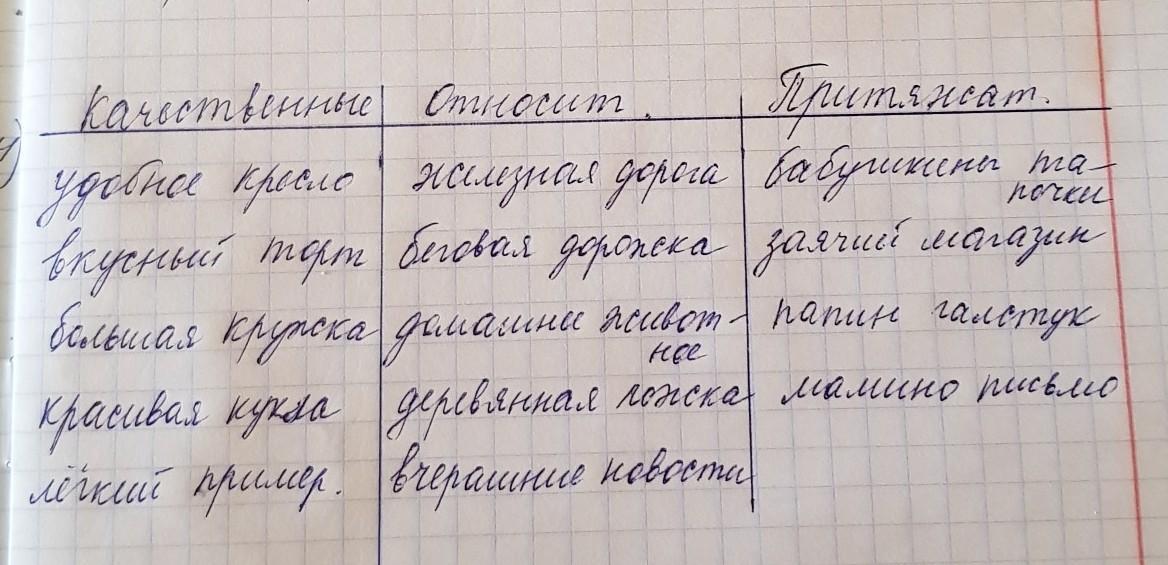 Качественные Относит. Притяжат.
удобное кресло железная дорога бабушкины та-
почки
вкусный торт беговая дорожка заячий магазин
большая кружка домашнее живот- папин галстук
ное
красивая кукла деревянная ложка мамино письмо
лёгкий пример. вчерашние новости